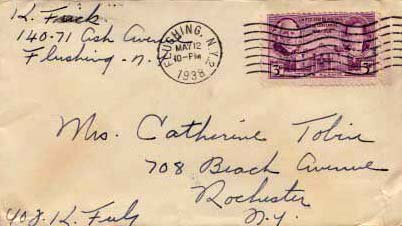 K. Frick
140-71 Ash Avenue
Flushing - N.Y.
FLUSHING, N.Y. 2
MAY 12
10-PM
1938
3¢ 3¢
Mrs. Catherine Tobin
708 Beach Avenue
Rochester
N.Y.